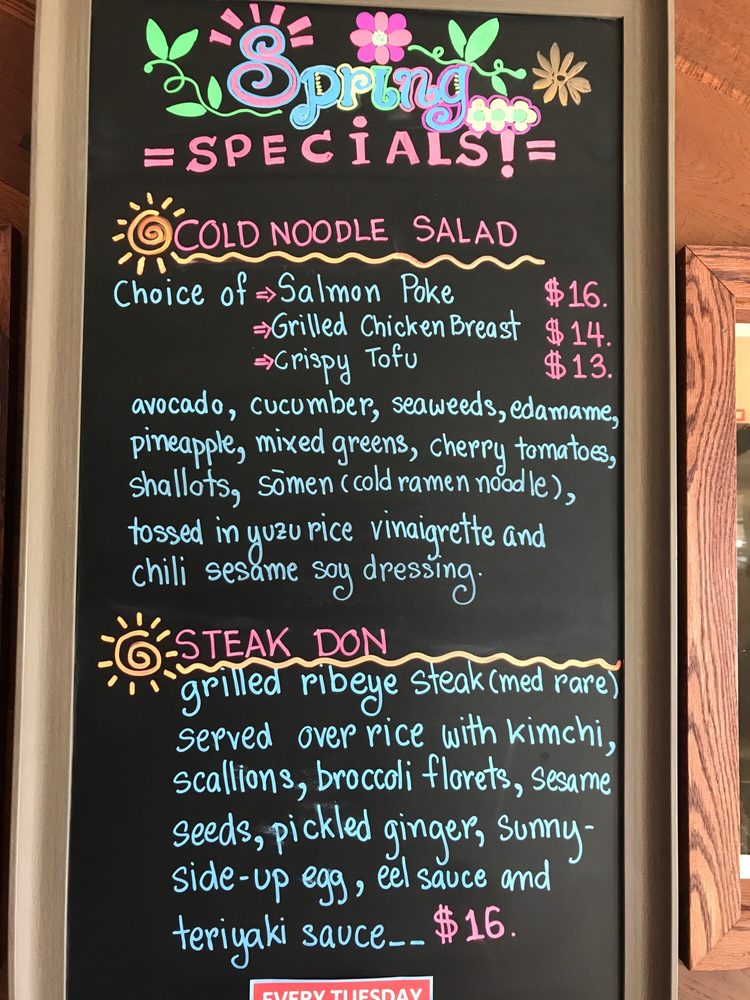 Spring
=SPECIALS!=
COLD NOODLE SALAD
Choice of ⇒ Salmon Poke $16.
⇒ Grilled Chicken Breast $14.
⇒ Crispy Tofu $13.
avocado, cucumber, seaweeds, edamame,
pineapple, mixed greens, cherry tomatoes,
shallots, sōmen (cold ramen noodle),
tossed in yuzu rice vinaigrette and
chili sesame soy dressing.
STEAK DON
grilled ribeye steak (med rare)
served over rice with kimchi,
scallions, broccoli florets, sesame
seeds, pickled ginger, sunny-
side-up egg, eel sauce and
teriyaki sauce-- $16.
EVERY TUESDAY